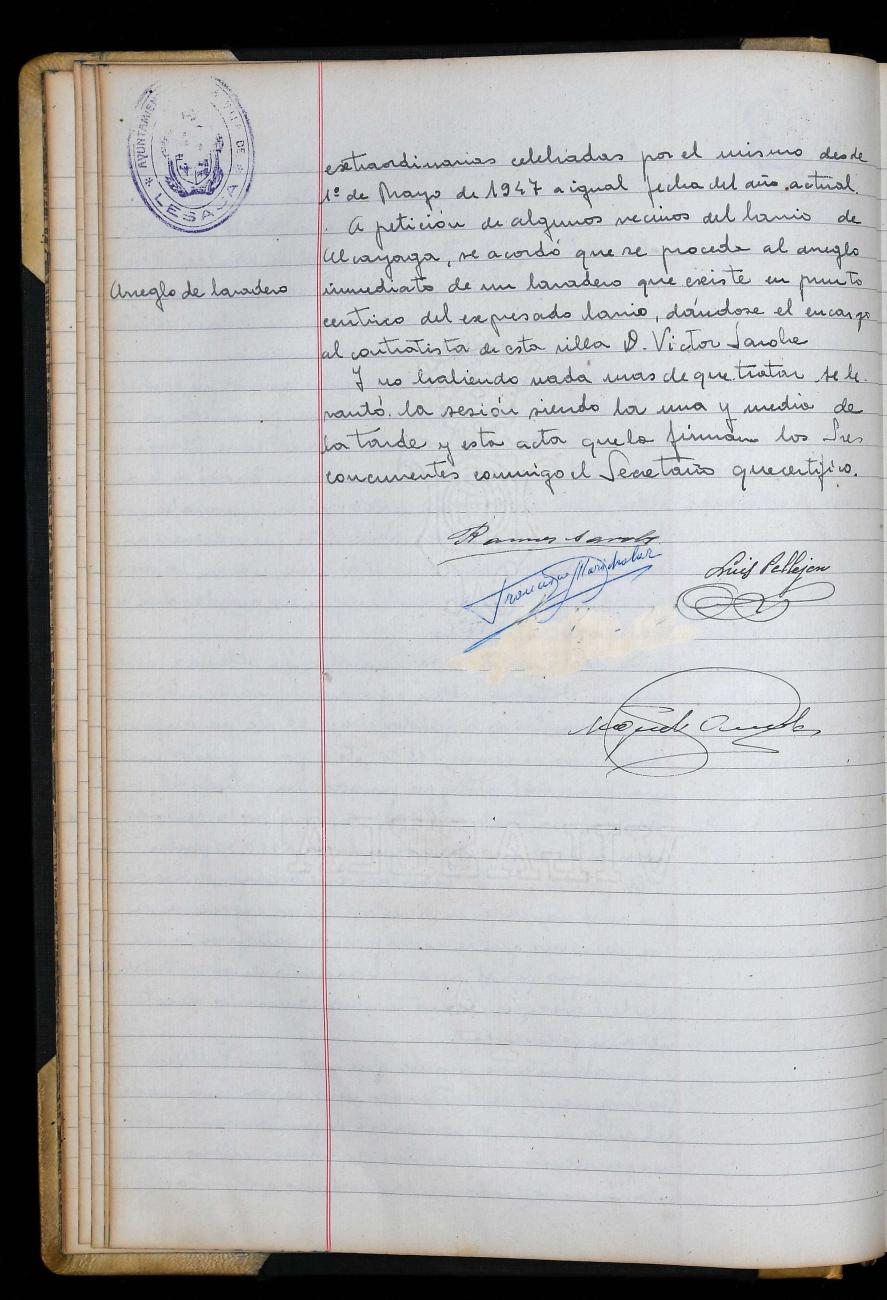 AYUNTAMIEN
VILLA DE
LESACA
extraordinarias celebradas por el mismo desde
1º de Mayo de 1947 a igual fecha del año actual.
A petición de algunos vecinos del barrio de
Alcayaga, se acordó que se proceda al arreglo
Arreglo de lavadero
inmediato de un lavadero que existe en punto
centrico del expresado barrio, dándose el encargo
al contratista de esta villa D. Victor Sarobe
Y no habiendo nada mas de que tratar se le-
vantó la sesión siendo la una y media de
la tarde y esta acta que la firman los Sres
concurrentes conmigo el Secretario que certifico.
Luis Pellejero